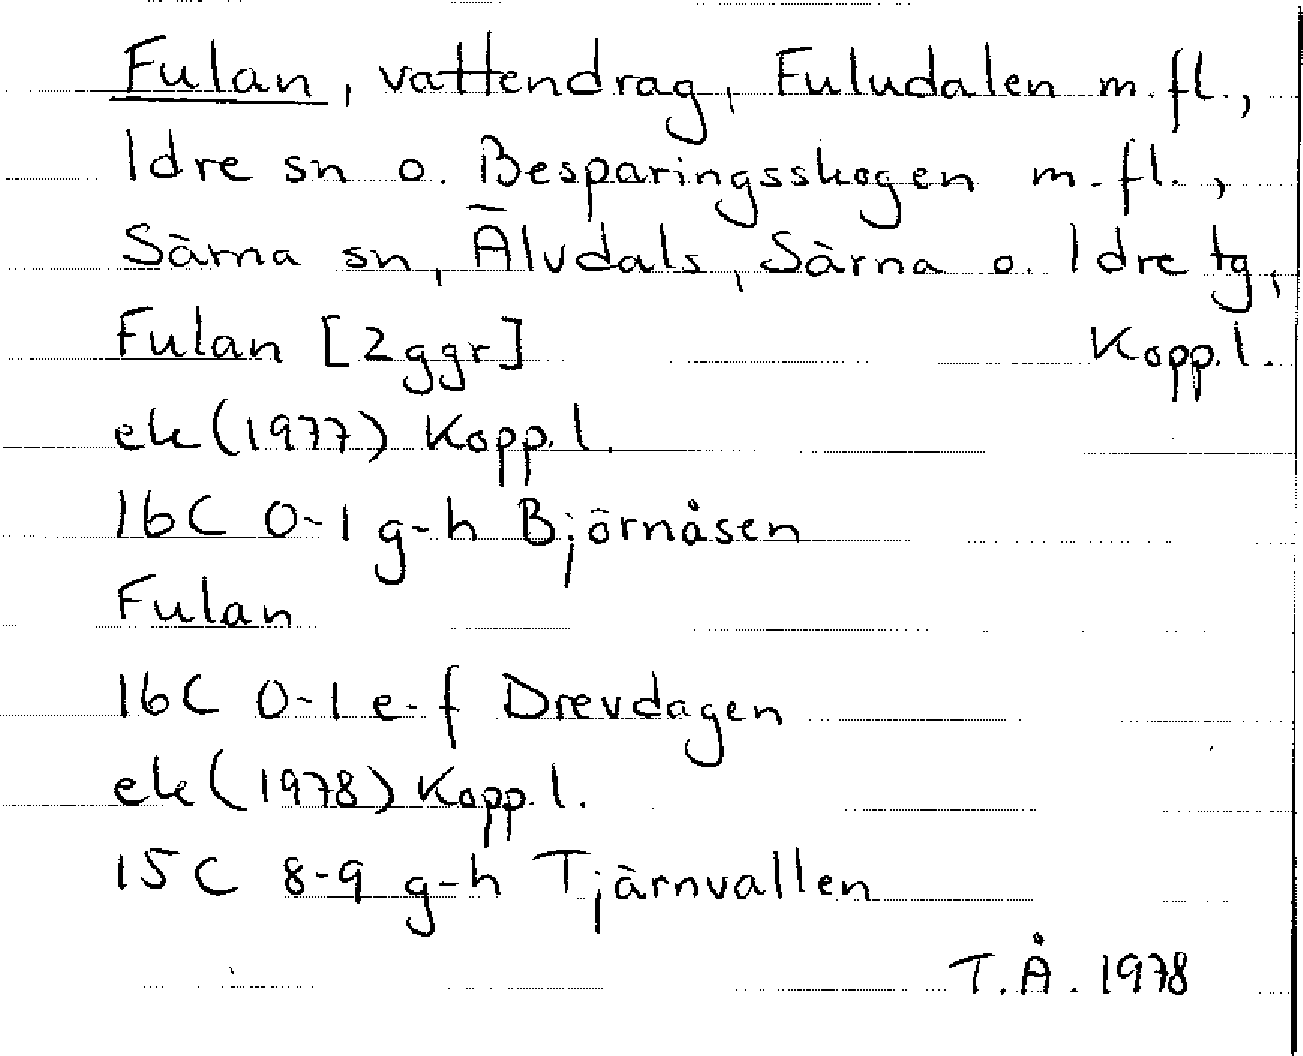 Fulan, vattendrag, Fuludalen m.fl.,
Idre sn o. Besparingsskogen m.fl.,
Särna sn, Älvdals, Särna o. Idre tg,
Fulan [2ggr] Kopp.l.
ek (1977) Kopp.l.
16C 0-1 g-h Björnåsen
Fulan
16C 0-1 e-f Drevdagen
ek (1978) Kopp.l.
15C 8-9 g-h Tjärnvallen
T.Å. 1978